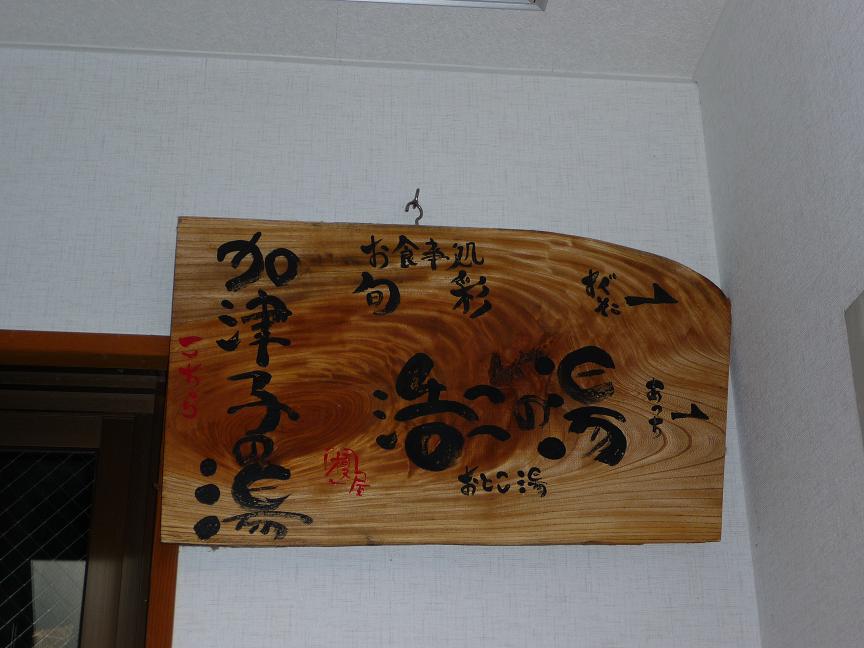 お食事処
旬彩
すぐそこ
浩二の湯
あっち
おとこ湯
加津子の湯
こちら